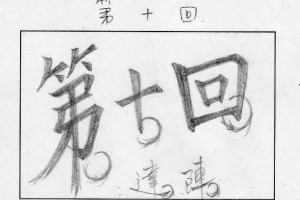 第十回
第十回
達陣